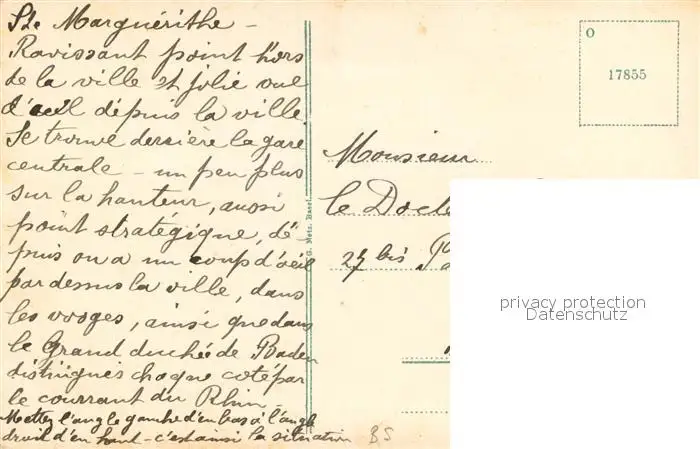 Ste Marguérithe -
Ravissant point hors
de la ville et jolie vue
d'œil dépuis la ville.
Se trouve derrière la gare
centrale - un peu plus
sur la hauteur, aussi
point stratégique, dé-
puis on a un coup d'œil
par dessus la ville, dans
les vosges, ainsi que dans
le Grand duché de Baden
distingués chaque coté par
le courrant du Rhin -
Mettez l'angle gauche d'en bas à l'angle
droit d'en haut - c'est ainsi la situation
G. Metz, Basel
O
17855
Monsieur
le
27 bis
privacy protection
Datenschutz
BS